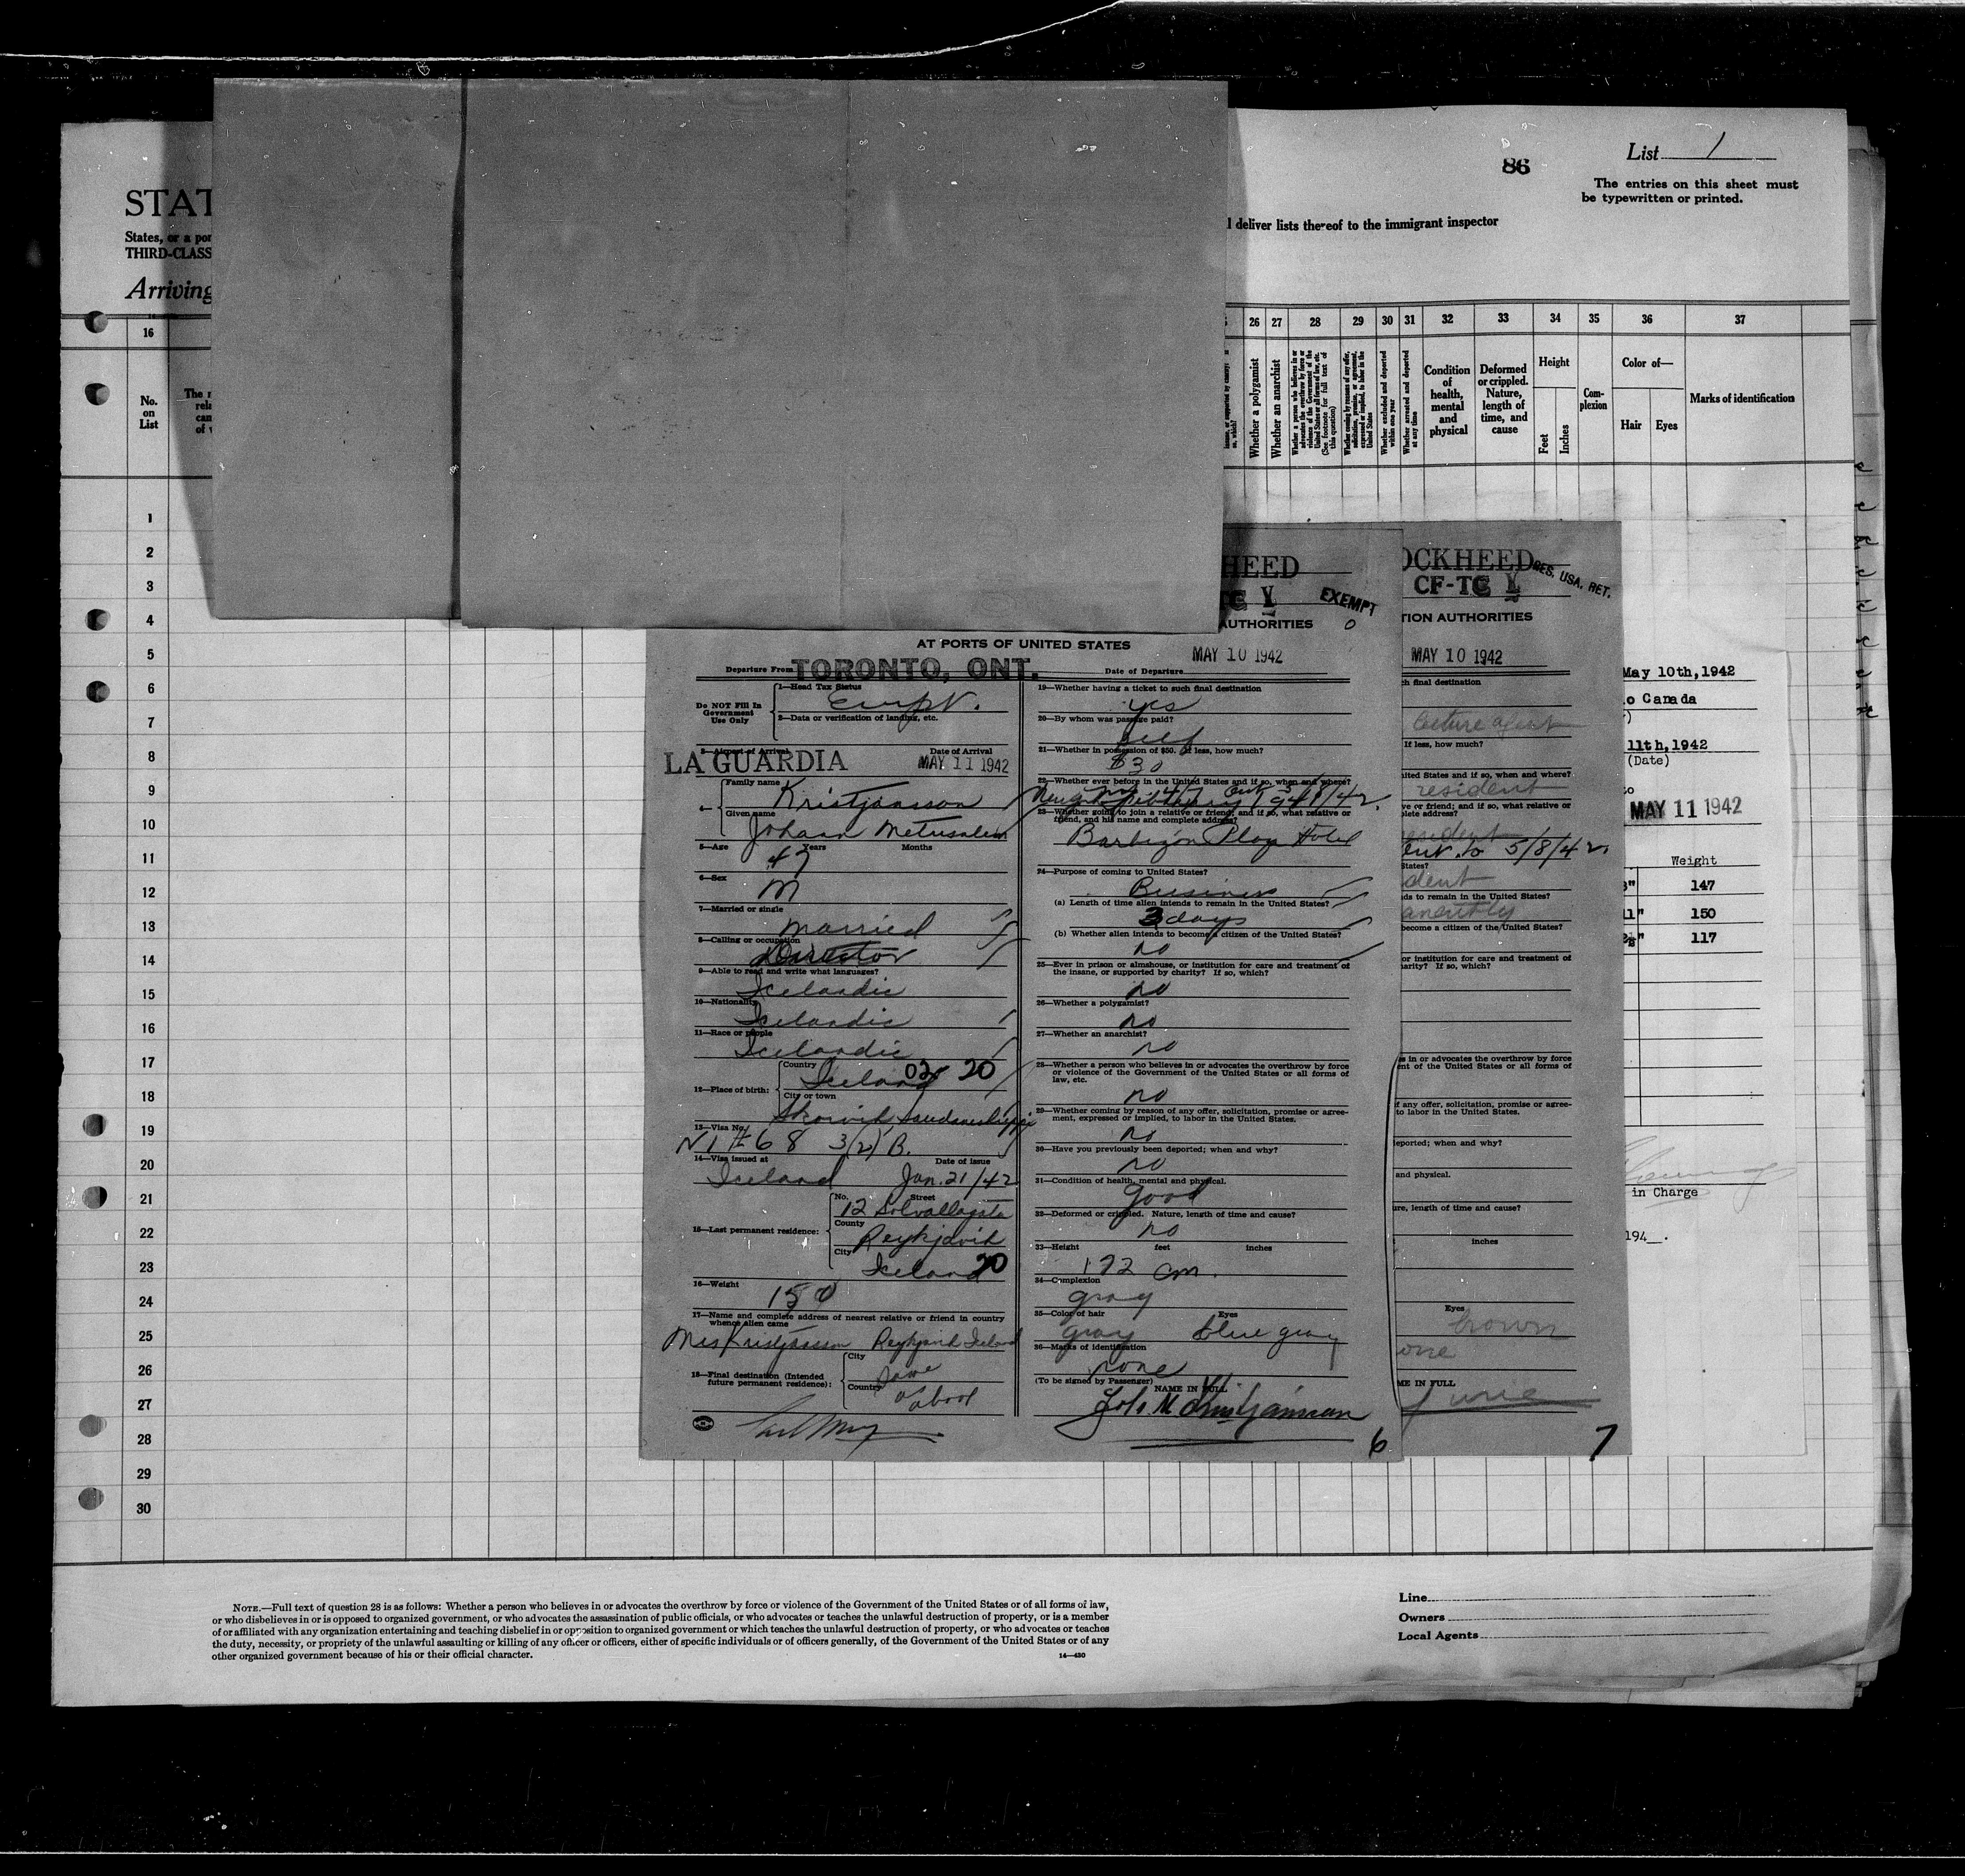 86
List 1
The entries on this sheet must
be typewritten or printed.
STAT
States, or a por
THIRD-CLASS
Arriving
l deliver lists thereof to the immigrant inspector
16
26 27 28 29 30 31 32 33 34 35 36 37
No.
on
List
Whether a polygamist
Whether an anarchist
Whether excluded and deported
within one year
Whether arrested and deported
at any time
Condition
of
health,
mental
and
physical
Deformed
or crippled.
Nature,
length of
time, and
cause
Height
Feet
Inches
Com-
plexion
Color of—
Hair Eyes
Marks of identification
1
2
3
4
5
6
7
8
9
10
11
12
13
14
15
16
17
18
19
20
21
22
23
24
25
26
27
28
29
30
HEED
EXEMPT
AUTHORITIES
AT PORTS OF UNITED STATES
Departure From TORONTO, ONT.
Date of Departure MAY 10 1942
Do NOT Fill In
Government
Use Only
1—Head Tax Status
2—Data or verification of landing, etc.
3—Airport of Arrival Date of Arrival
LA GUARDIA MAY 11 1942
4—
Family name
Kristjansson
Given name
Johann Metusalem
5—Age Years Months
47
6—Sex
M
7—Married or single
Married
8—Calling or occupation
Director
9—Able to read and write what languages?
Icelandic
10—Nationality
Icelandic
11—Race or people
Icelandic
12—Place of birth:
Country
Iceland 20
City or town
13—Visa No.
N I # 68 3(2) B.
14—Visa issued at Date of issue
Iceland Jan. 21/42
15—Last permanent residence:
No. Street
12 Solvallagata
County
Reykjavik
City
Iceland 20
16—Weight
150
17—Name and complete address of nearest relative or friend in country
whence alien came
Mrs Kristjansson Reykjavik Iceland
18—Final destination (Intended
future permanent residence):
City
County
19—Whether having a ticket to such final destination
yes
20—By whom was passage paid?
self
21—Whether in possession of $50. If less, how much?
$30
22—Whether ever before in the United States and if so, when and where?
23—Whether going to join a relative or friend; and if so, what relative or
friend, and his name and complete address?
Barbizon Plaza Hotel
24—Purpose of coming to United States?
Business
(a) Length of time alien intends to remain in the United States?
3 days
(b) Whether alien intends to become a citizen of the United States?
no
25—Ever in prison or almshouse, or institution for care and treatment of
the insane, or supported by charity? If so, which?
no
26—Whether a polygamist?
no
27—Whether an anarchist?
no
28—Whether a person who believes in or advocates the overthrow by force
or violence of the Government of the United States or all forms of
law, etc.
no
29—Whether coming by reason of any offer, solicitation, promise or agree-
ment, expressed or implied, to labor in the United States.
no
30—Have you previously been deported; when and why?
no
31—Condition of health, mental and physical.
good
32—Deformed or crippled. Nature, length of time and cause?
no
33—Height feet inches
172 cm.
34—Complexion
gray
35—Color of hair Eyes
gray blue gray
36—Marks of identification
none
(To be signed by Passenger)
NAME IN FULL
Joh. M. Kristjánsson
6
OCKHEED
CF-TC
RES. USA. RET.
TION AUTHORITIES
MAY 10 1942
ch final destination
lecture agent
If less, how much?
nited States and if so, when and where?
resident
ve or friend; and if so, what relative or
plete address?
esident
to 5/8/42.
States?
dent
ds to remain in the United States?
anently
become a citizen of the United States?
or institution for care and treatment of
harity? If so, which?
es in or advocates the overthrow by force
ent of the United States or all forms of
f any offer, solicitation, promise or agree-
to labor in the United States.
eported; when and why?
and physical.
ure, length of time and cause?
inches
Eyes
brown
one
ME IN FULL
7
May 10th,1942
o Canada
11th,1942
(Date)
to
MAY 11 1942
Weight
147
11" 150
117
in Charge
194__.
NOTE.—Full text of question 28 is as follows: Whether a person who believes in or advocates the overthrow by force or violence of the Government of the United States or of all forms of law,
or who disbelieves in or is opposed to organized government, or who advocates the assassination of public officials, or who advocates or teaches the unlawful destruction of property, or is a member
of or affiliated with any organization entertaining and teaching disbelief in or opposition to organized government or which teaches the unlawful destruction of property, or who advocates or teaches
the duty, necessity, or propriety of the unlawful assaulting or killing of any officer or officers, either of specific individuals or of officers generally, of the Government of the United States or of any
other organized government because of his or their official character.
14—430
Line
Owners
Local Agents